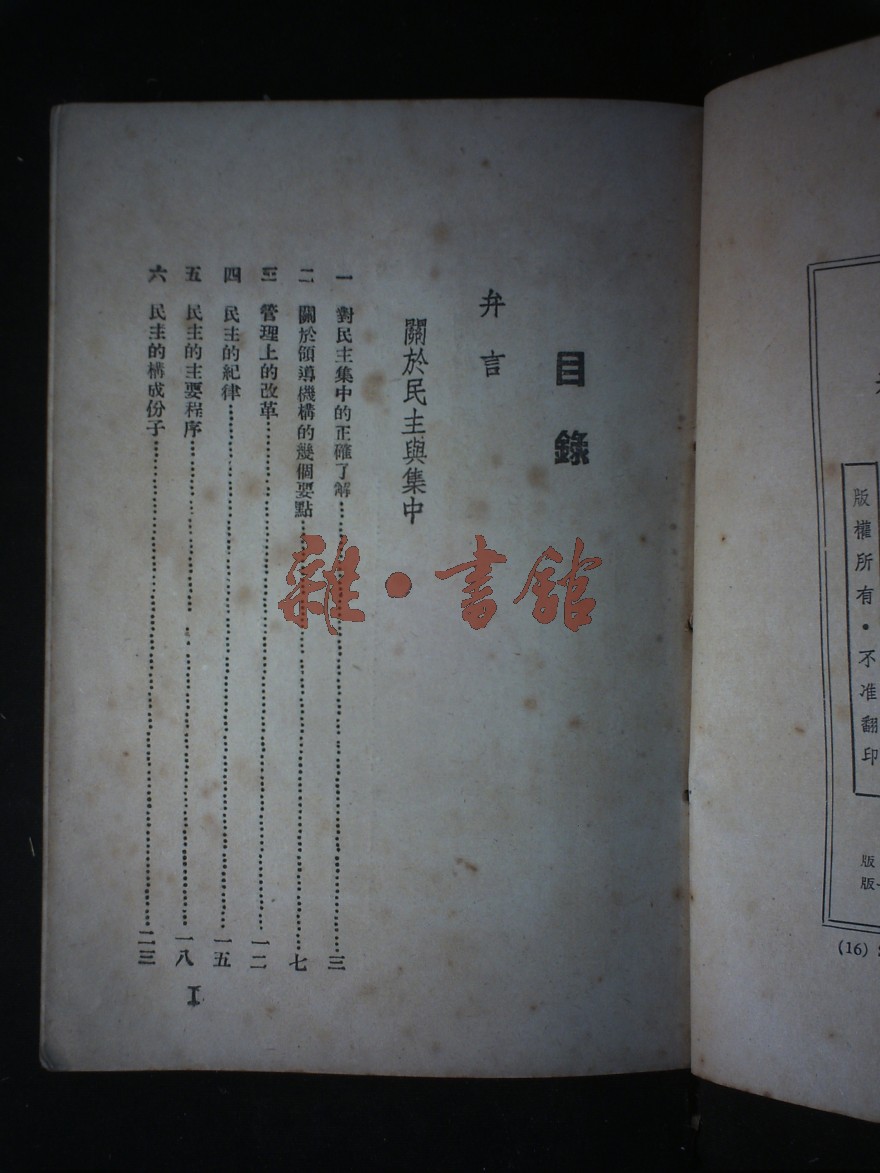 目錄
弁言
關於民主與集中
一 對民主集中的正確了解……三
二 關於領導機構的幾個要點……七
三 管理上的改革……一二
四 民主的紀律……一五
五 民主的主要程序……一八
六 民主的構成份子……二三
I
雜·書館
版權所有·不准翻印
版
版
(16)